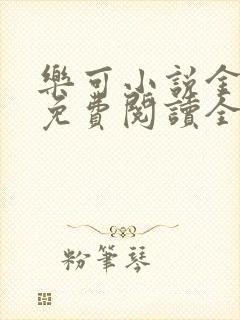 樂可小説全
免費閱讀全
粉筆琴